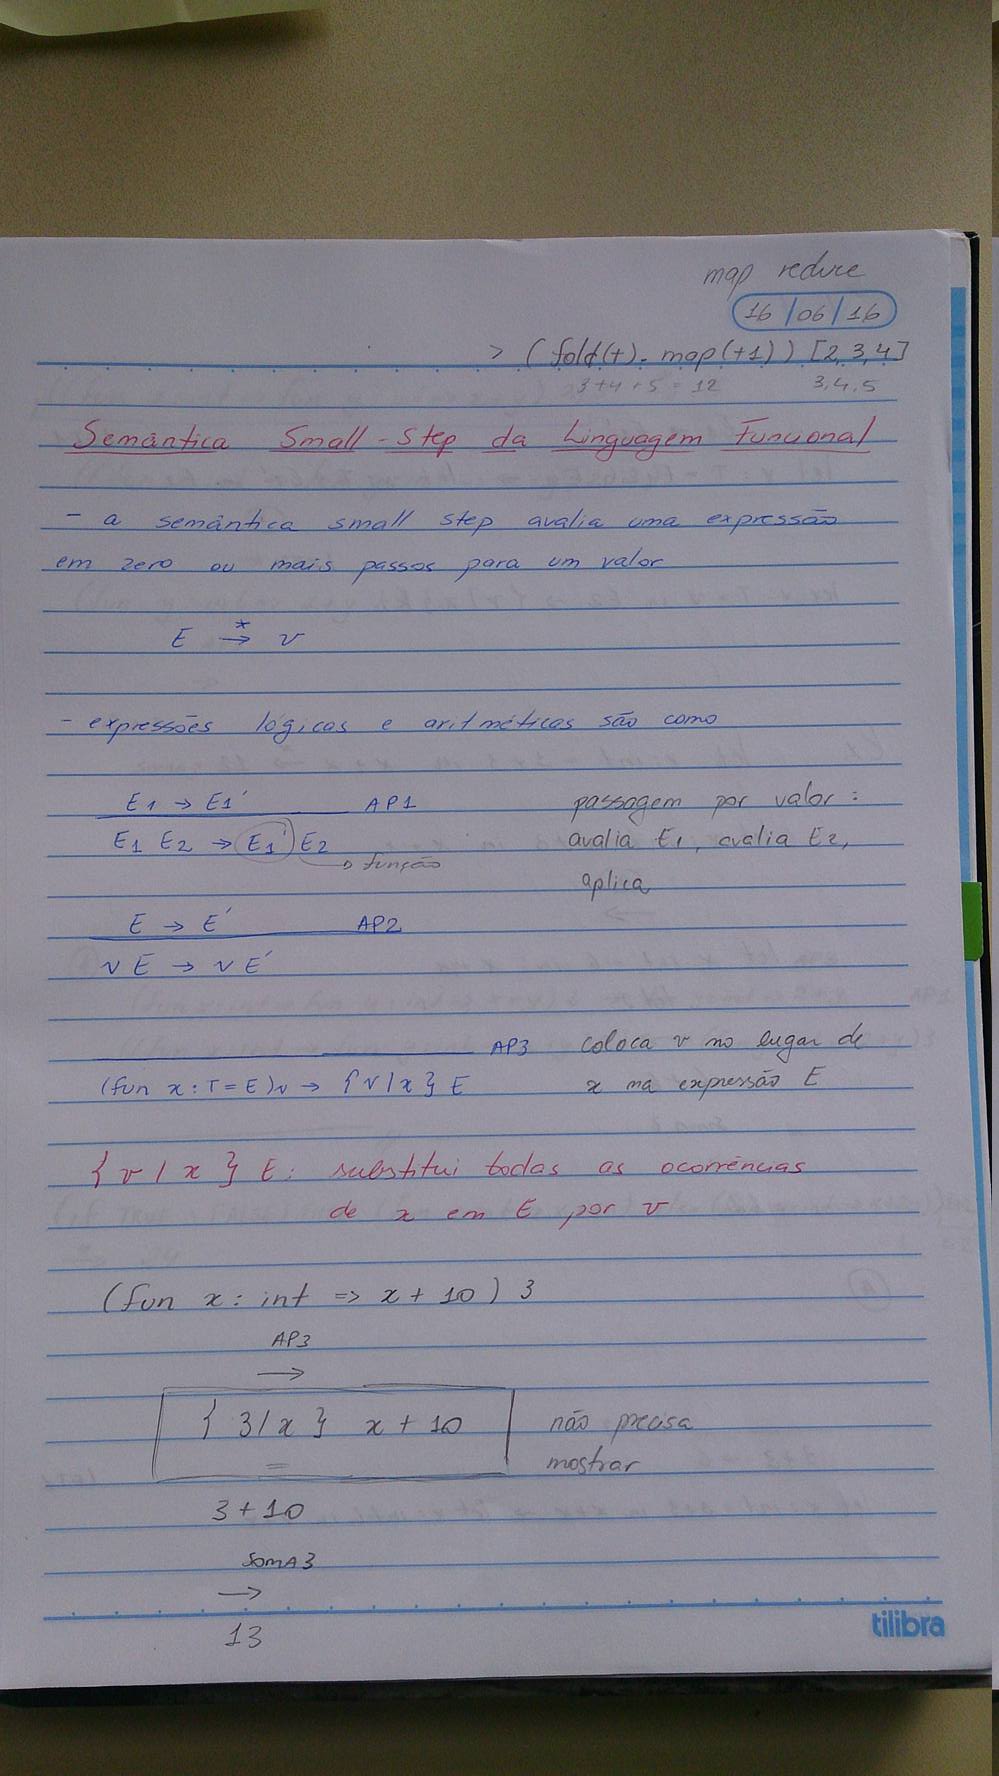 map reduce
16/06/16
> (fold(+). map(+1)) [2,3,4]
3+4+5=12 3,4,5
Semântica Small-Step da Linguagem Funcional
- a semântica small step avalia uma expressão
em zero ou mais passos para um valor
E →* v
- expressões lógicas e aritméticas são como
E1 → E1' AP1 passagem por valor:
E1 E2 → E1' E2 avalia E1, avalia E2,
↳ função
aplica
E → E' AP2
v E → v E'
AP3 coloca v no lugar de
(fun x:T=E)v → {v/x} E x na expressão E
{v/x} E: substitui todas as ocorrências
de x em E por v
(fun x: int => x + 10) 3
AP3
→
{3/x} x + 10 não precisa
= mostrar
3 + 10
SOMA3
→
13
tilibra